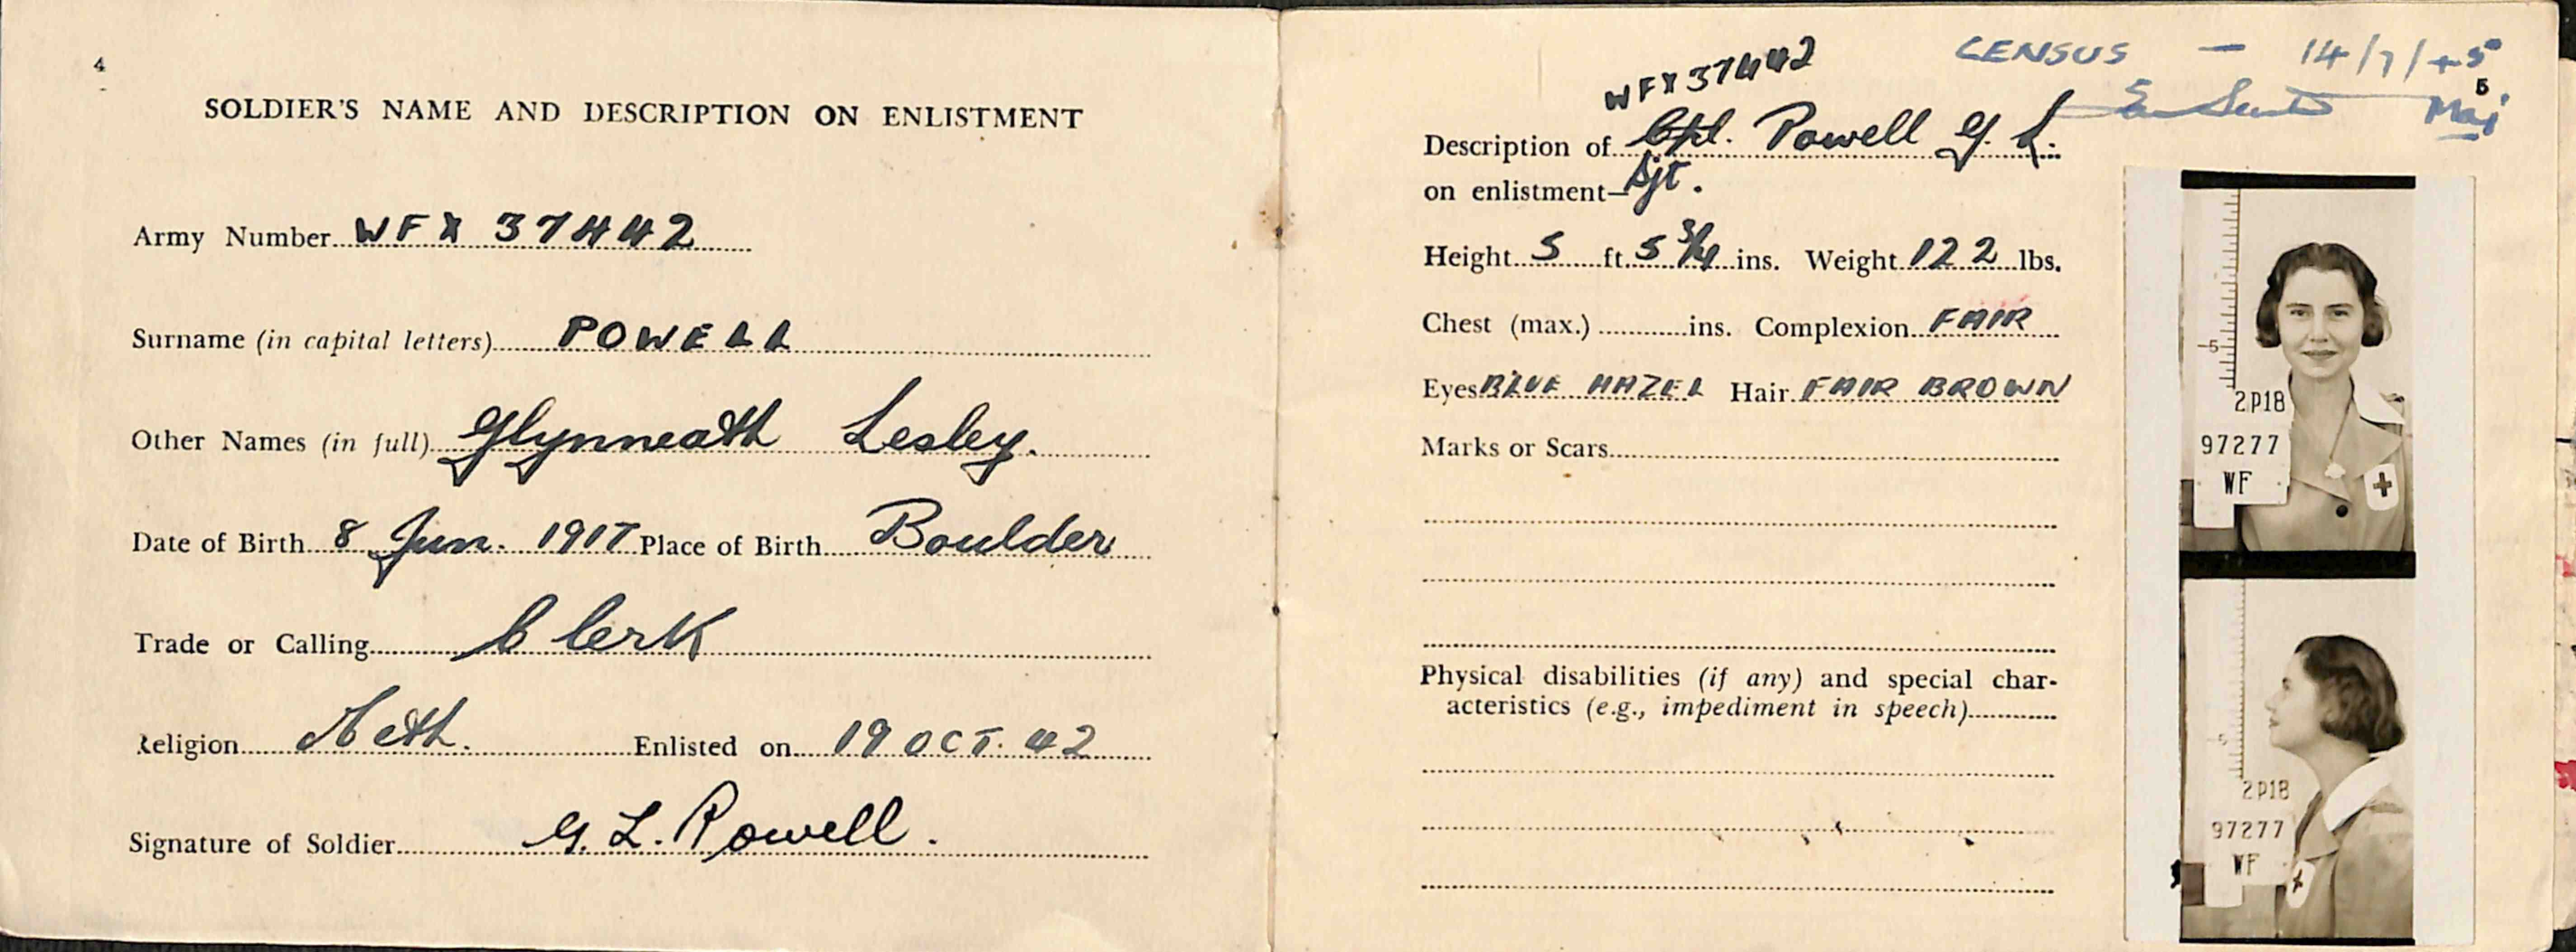 4
SOLDIER'S NAME AND DESCRIPTION ON ENLISTMENT
Army Number WFX 37442
Surname (in capital letters) POWELL
Other Names (in full) Glynneath Lesley.
Date of Birth 8 Jun. 1917 Place of Birth Boulder
Trade or Calling Clerk
Religion Meth. Enlisted on 19 OCT. 42
Signature of Soldier G. L. Powell.
CENSUS — 14/7/45
5
Maj
WFX 37442
Description of Cpl. Powell G. L.
on enlistment— Sjt.
Height 5 ft. 5 3/4 ins. Weight 122 lbs.
Chest (max.) ins. Complexion FAIR
Eyes BLUE HAZEL Hair FAIR BROWN
Marks or Scars
Physical disabilities (if any) and special char-
acteristics (e.g., impediment in speech)
5
2P18
97277
WF
5
2P18
97277
WF